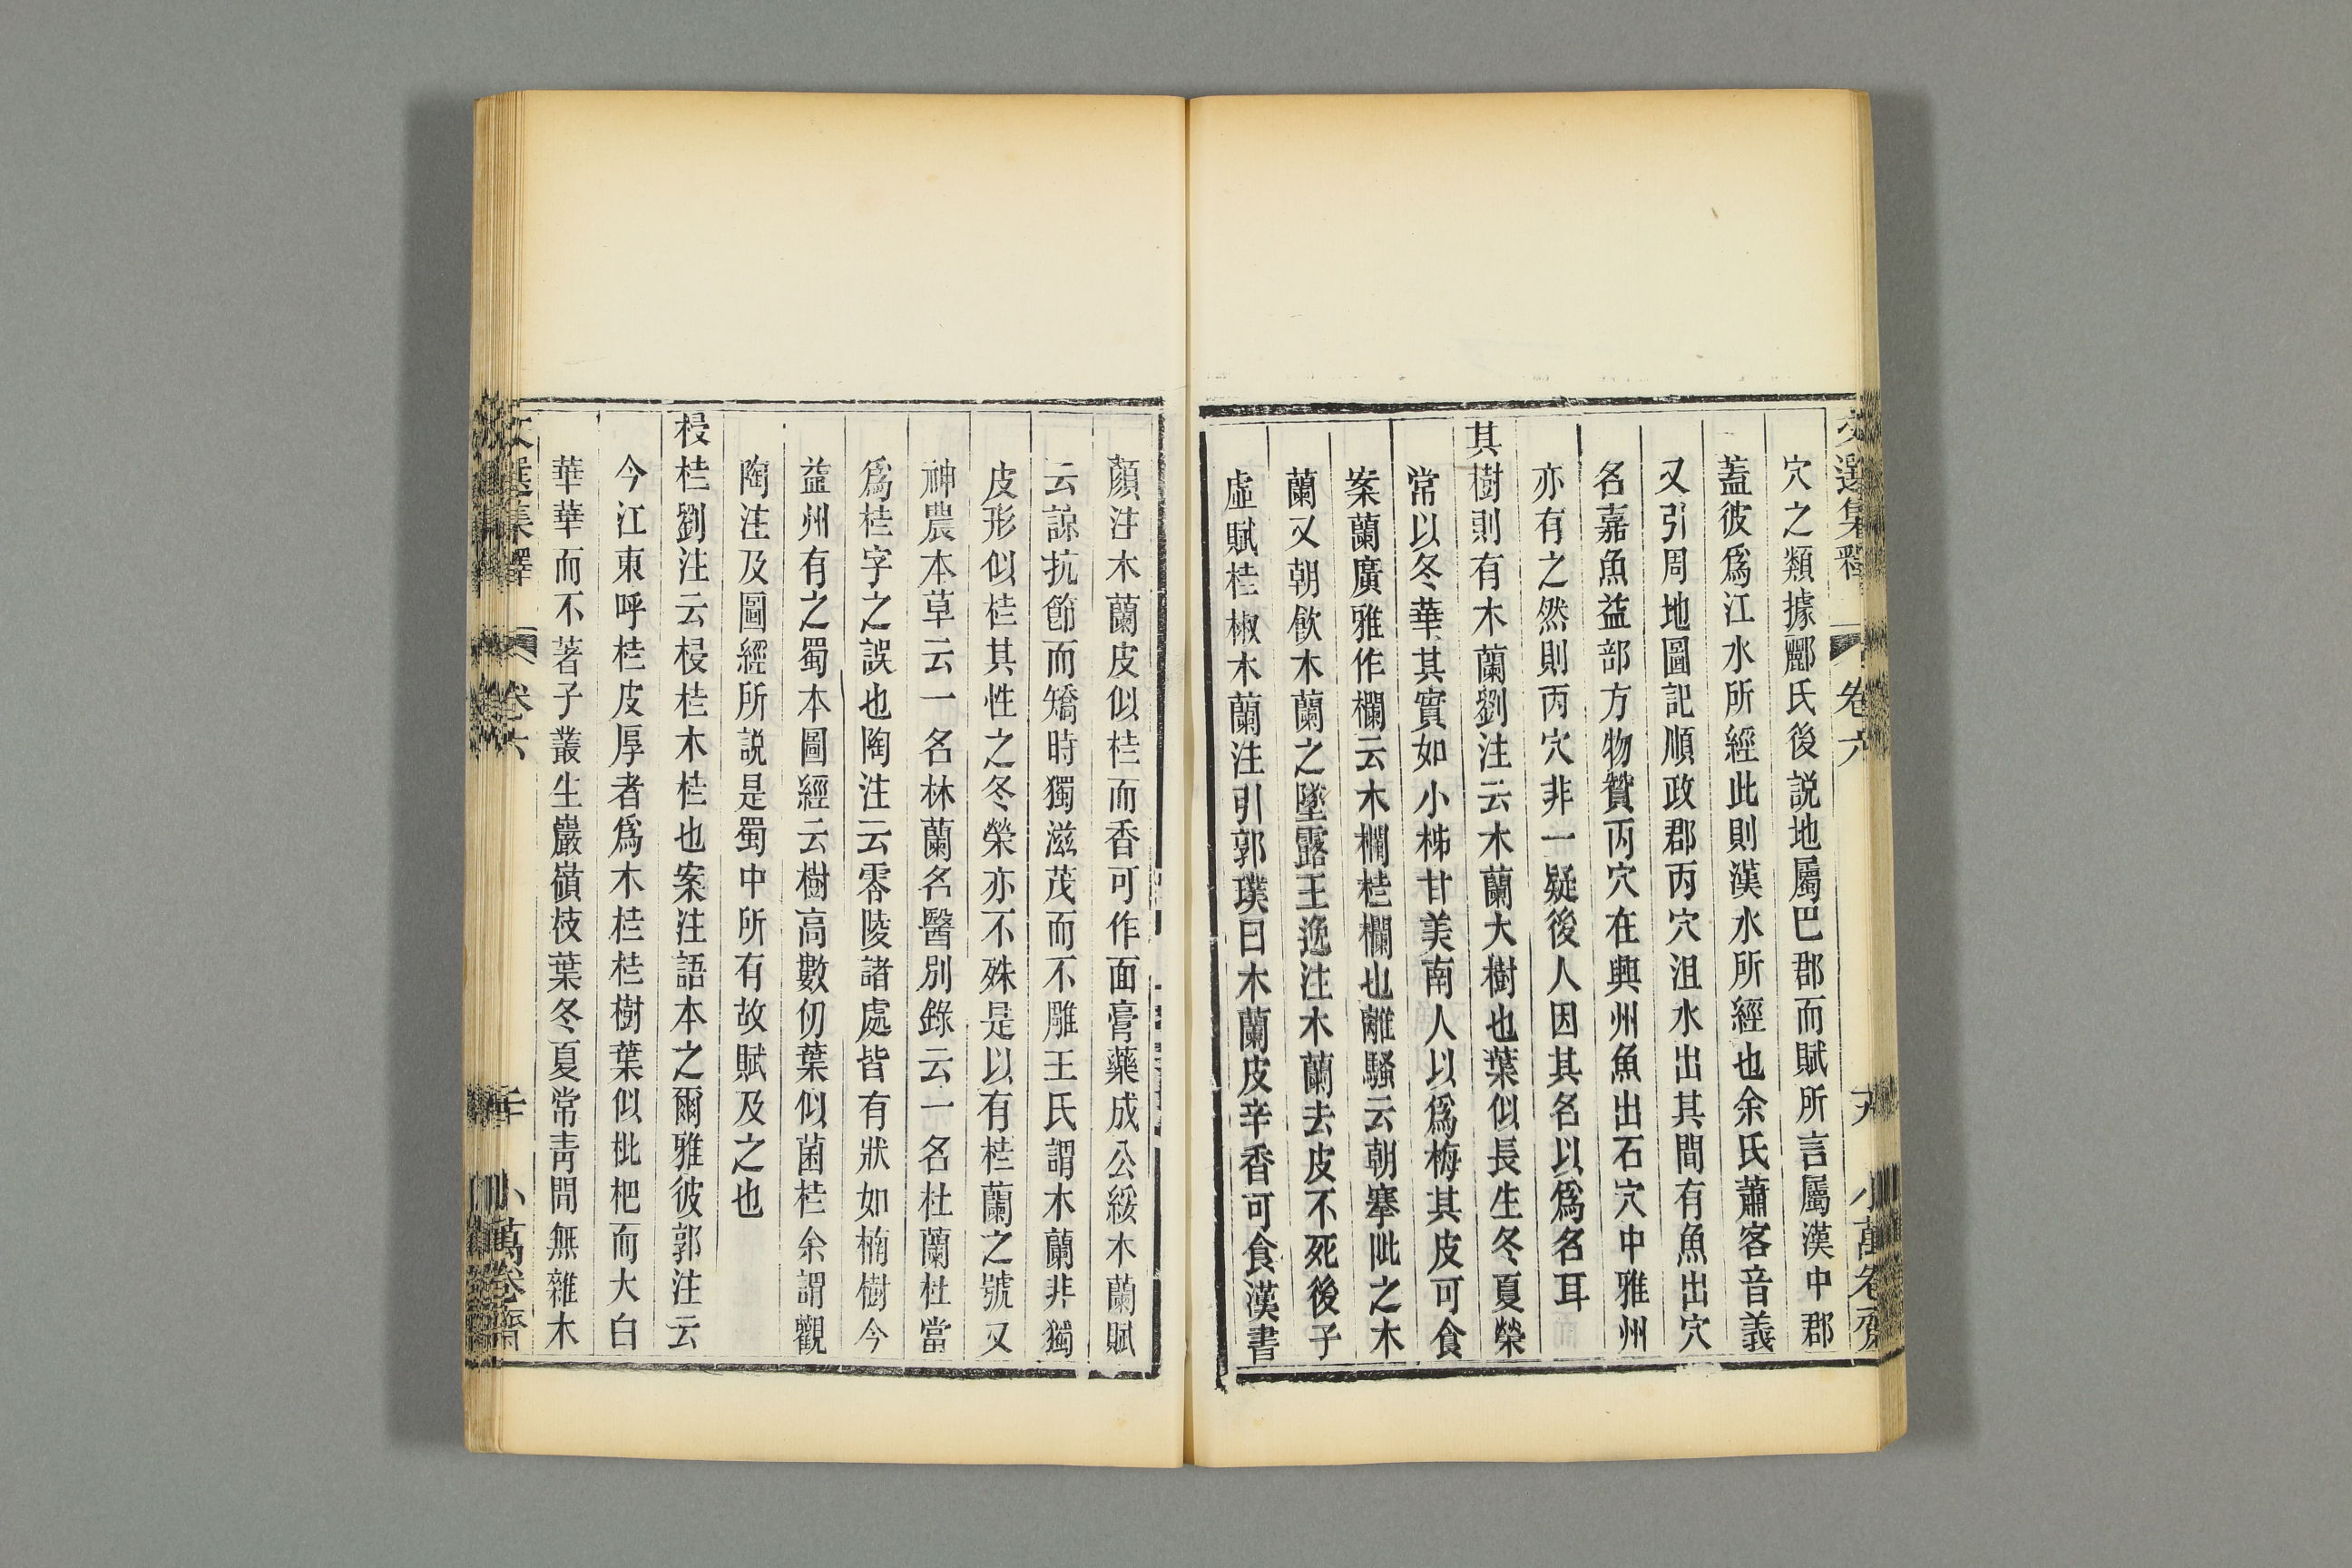 文選集釋 卷六 十九 小萬卷齋
穴之類據酈氏後説地屬巴郡而賦所言屬漢中郡
蓋彼爲江水所經此則漢水所經也余氏蕭客音義
又引周地圖記順政郡丙穴沮水出其間有魚出穴
名嘉魚益部方物贊丙穴在興州魚出石穴中雅州
亦有之然則丙穴非一疑後人因其名以爲名耳
其樹則有木蘭劉注云木蘭大樹也葉似長生冬夏榮
常以冬華其實如小柹甘美南人以爲梅其皮可食
案蘭廣雅作欄云木欄桂欄也離騷云朝搴阰之木
蘭又朝飮木蘭之墜露王逸注木蘭去皮不死後子
虛賦桂椒木蘭注引郭璞曰木蘭皮辛香可食漢書
顏注木蘭皮似桂而香可作面膏藥成公綏木蘭賦
云諒抗節而矯時獨滋茂而不雕王氏謂木蘭非獨
皮形似桂其性之冬榮亦不殊是以有桂蘭之號又
神農本草云一名林蘭名醫別錄云一名杜蘭杜當
爲桂字之誤也陶注云零陵諸處皆有狀如楠樹今
益州有之蜀本圖經云樹高數仞葉似菌桂余謂觀
陶注及圖經所説是蜀中所有故賦及之也
梫桂劉注云梫桂木桂也案注語本之爾雅彼郭注云
今江東呼桂皮厚者爲木桂桂樹葉似枇杷而大白
華華而不著子叢生巖嶺枝葉冬夏常靑間無雜木
文選集釋 卷六 二十 小萬卷齋